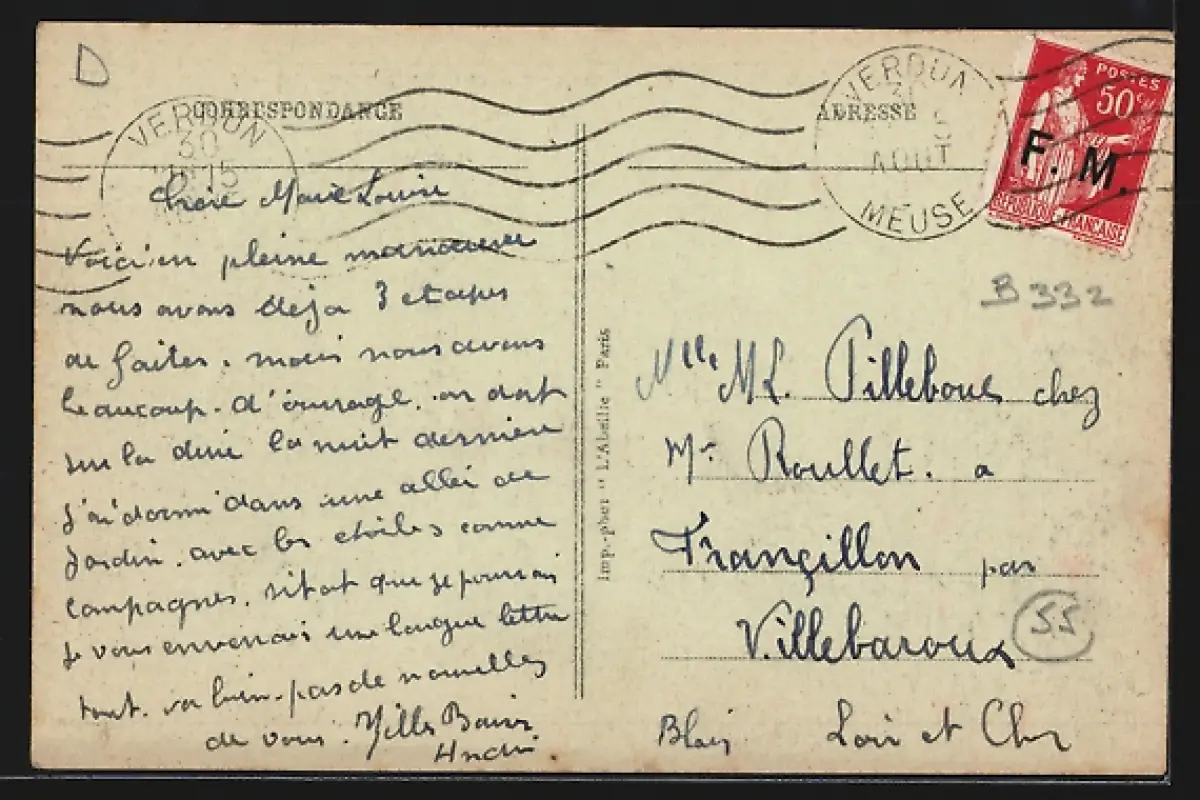 D
CORRESPONDANCE
VERDUN
30
Chère Marie Louise
Voici en pleine manœuvre
nous avons déja 3 etapes
de faites. mais nous avons
beaucoup. d'ouvrage. on dort
sur la dure la nuit dernière
j'ai dormi dans une allée de
jardin. avec les etoiles comme
compagnes. sitot que je pourrai
je vous enverrais une longue lettre
tout. va bien. pas de nouvelles
de vous. Mille Baisers
André
Imp.-phot "L'Abeille" Paris
ADRESSE
VERDUN
30
AOUT
MEUSE
POSTES
50c
F. M.
REPUBLIQUE FRANCAISE
B 332
Mlle ML. Pilleboue chez
Mr Roullet. a
Françillon par
Villebaroux
55
Blois Loir et Cher